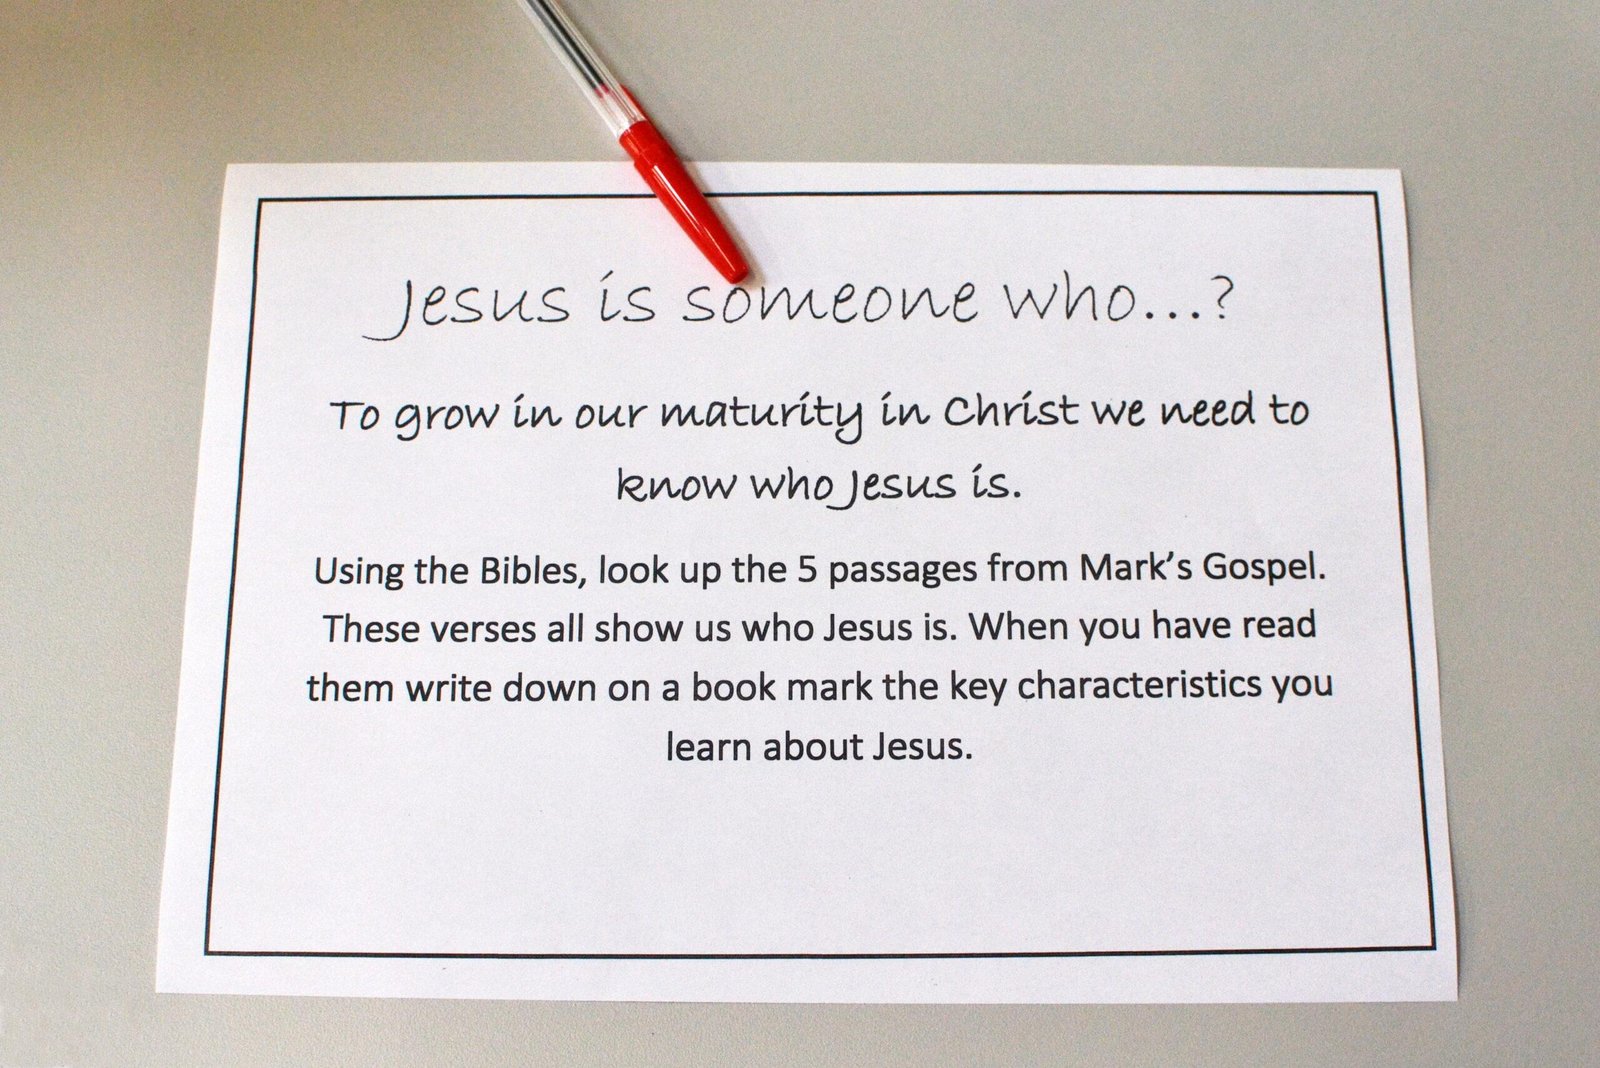 Jesus is someone who...?
To grow in our maturity in Christ we need to
know who Jesus is.
Using the Bibles, look up the 5 passages from Mark’s Gospel.
These verses all show us who Jesus is. When you have read
them write down on a book mark the key characteristics you
learn about Jesus.